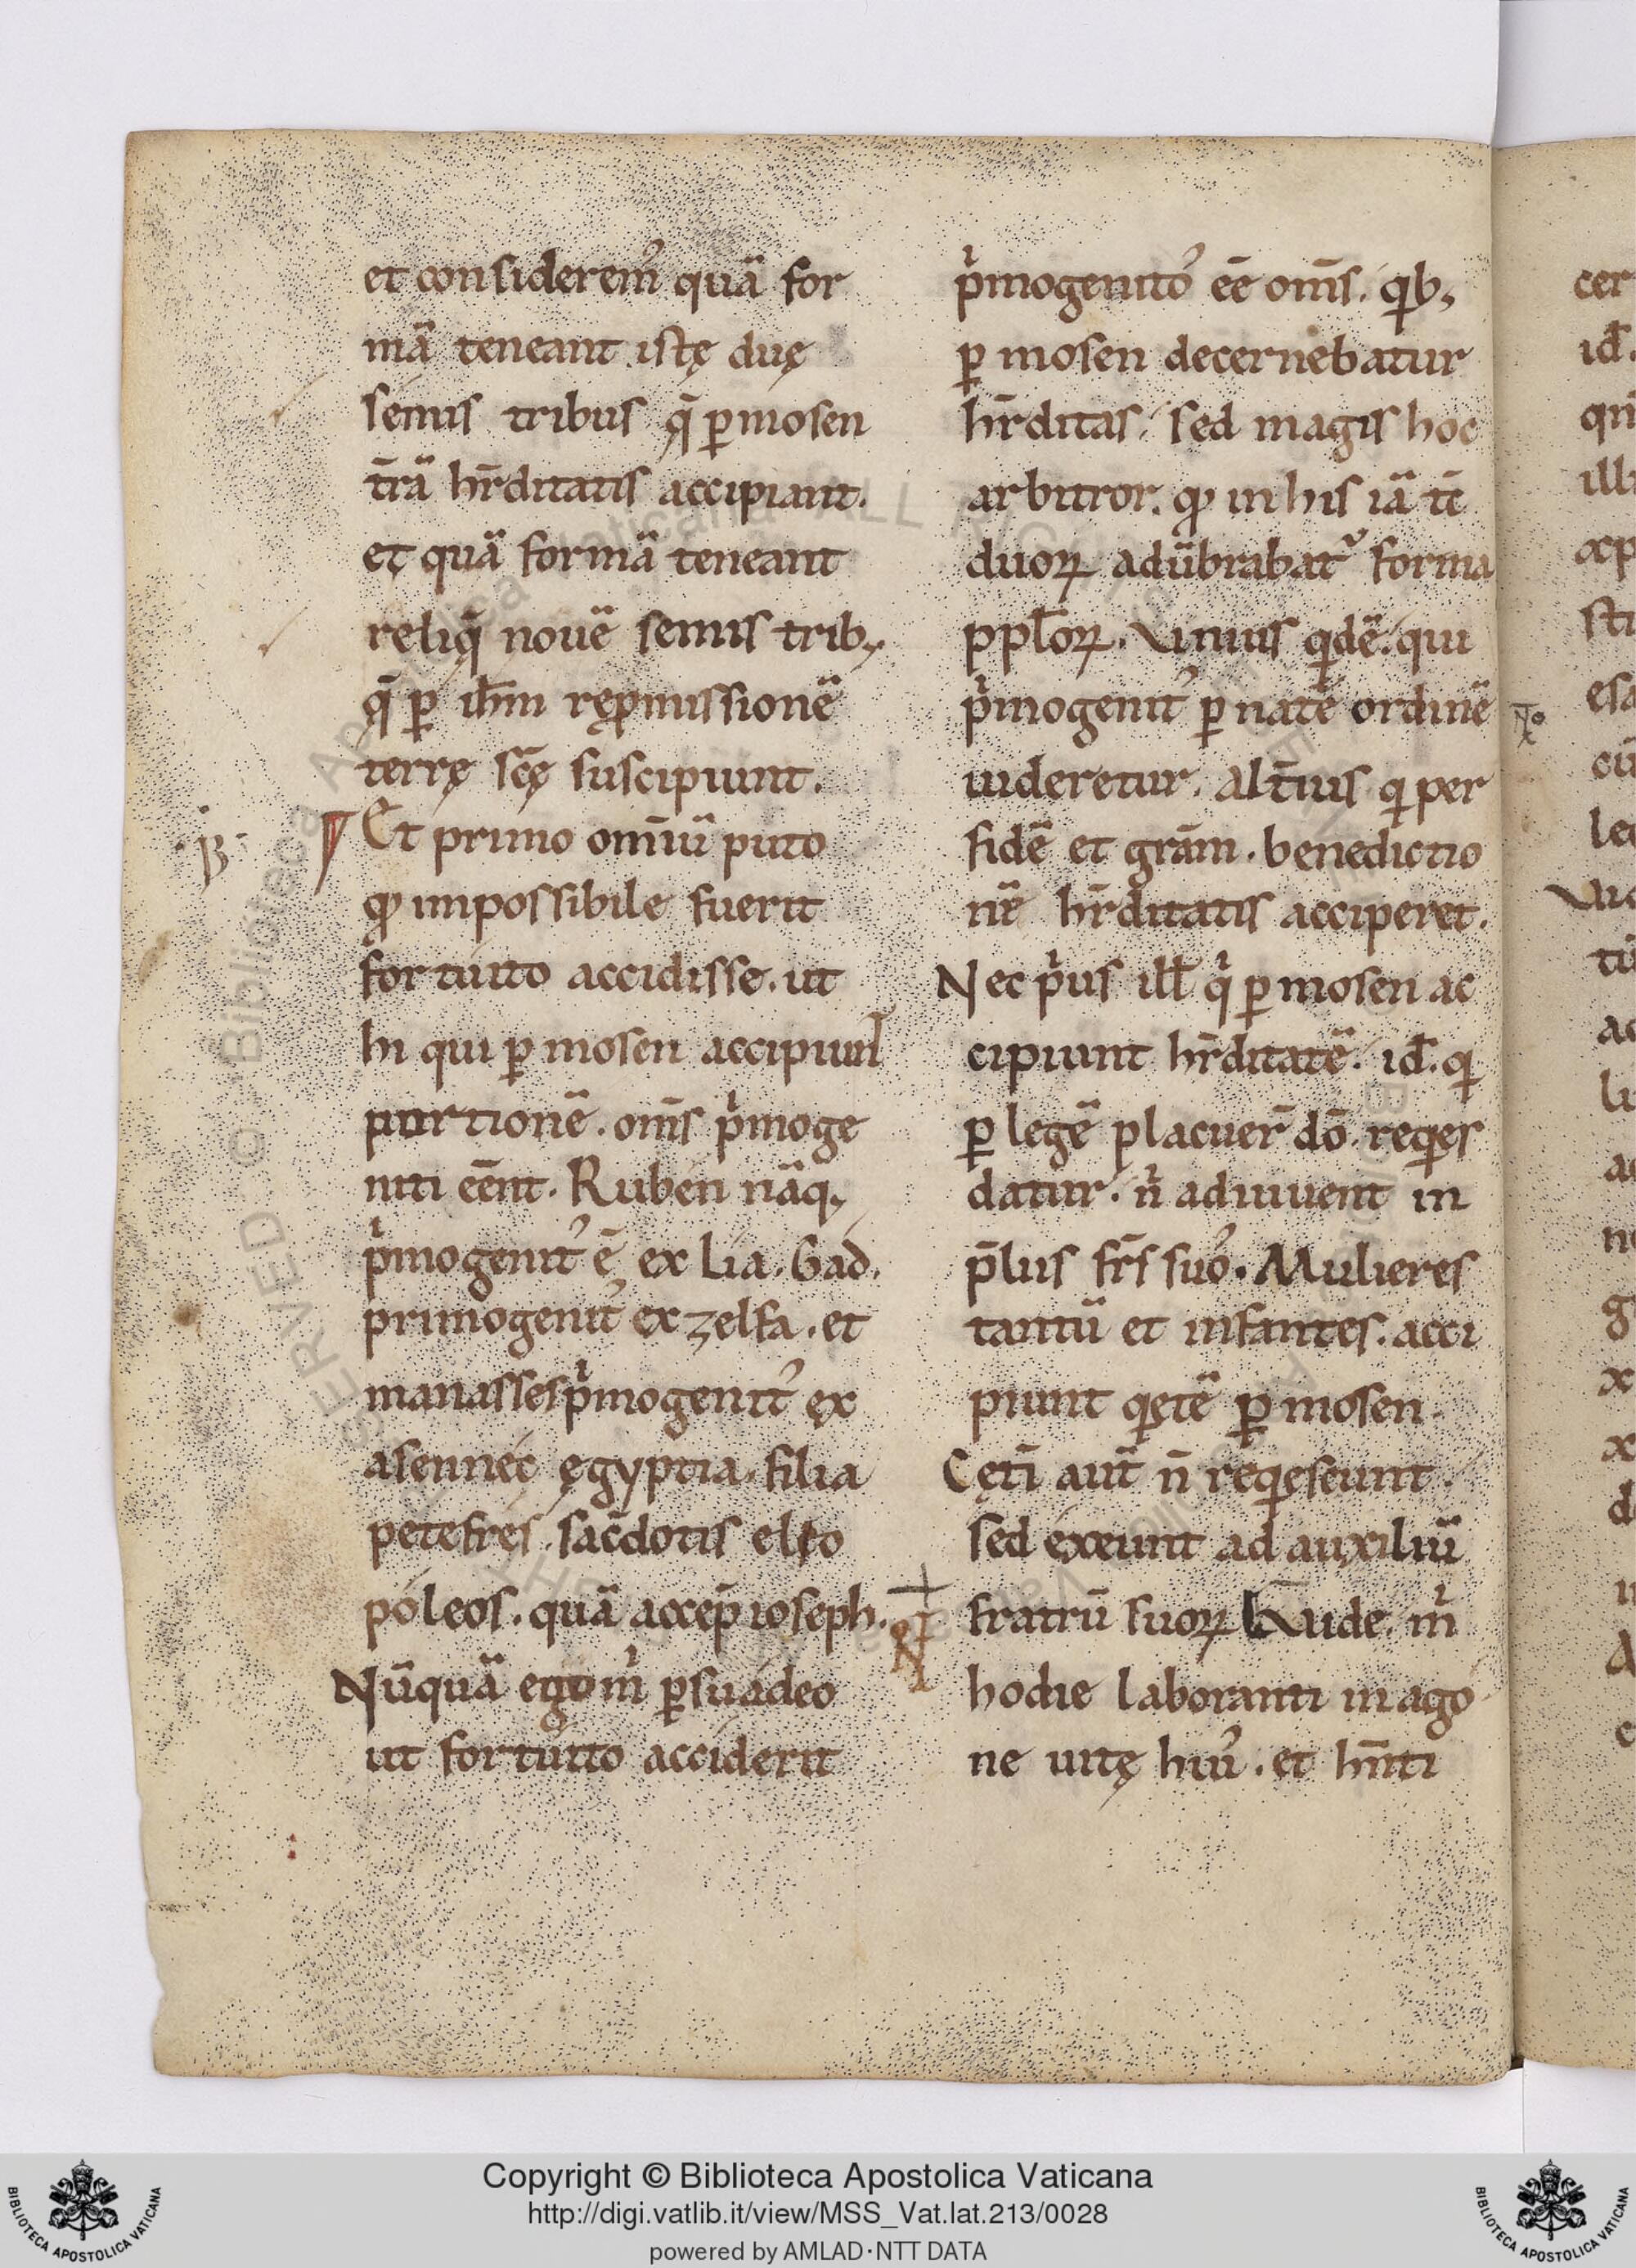 et considerem᾽ quā for
mā teneant istę duę
semis tribus q̄ ꝑ mosen
t̄rā hr̄ditatis accipiant.
et quā formā teneant
reliq̄ nouē semis trib;
q̄ ꝑ ih̄m rep̱missionē
terrę scę̄ suscipiunt.
Et primo omīū puto
ꝙ impossibile fuerit
fortuito accidisse. ut
hi qui ꝑ mosen accipiunt
portionē. om̄s p̍moge
niti eēnt. Ruben nāq;
p̍mogenit᾽ ē ex lia. Gad.
primogenit᾽ ex zelfa. et
manasses p̍mogenit᾽ ex
asennec ęgyptia. filia
petefres. sac̄dotis elio
poleos. quā accep̄ ioseph.
Nūquā ego m̍ ꝑsuadeo
ut fortuito acciderit
p̍mogenito᾽ eē om̄s. qib;
ꝑ mosen decernebatur
hr̄ditas. sed magis hoc
arbitror. ꝙ in his iā tē
duoꝝ adūbrabat᾽ forma
pplōꝝ. Unius qidē. qui
p̍mogenit᾽ ꝑ natē ordinē
uideretur. alt̄ius qi per
fidē et grām. benedictio
nē hr̄ditatis acciperet.
Nec p̍us ill̄ q̍ ꝑ mosen ac
cipiunt hr̄ditatē. id̄. qi
ꝑ legē placuer̄ dō. reqies
datur. n̍ adiuuent in
p̄liis fr̄s suo᾽. Mulieres
tantū et infantes. acci
piunt qietē ꝑ mosen.
Cęti aut̄ n̄ reqiescunt.
sed exeunt ad auxiliū
fratrū suoꝝ. Unde. m̍
hodie laboranti in ago
ne uitę hui᾽. et hn̄ti
Copyright © Biblioteca Apostolica Vaticana
http://digi.vatlib.it/view/MSS_Vat.lat.213/0028
powered by AMLAD·NTT DATA
BIBLIOTECA APOSTOLICA VATICANA
BIBLIOTECA APOSTOLICA VATICANA